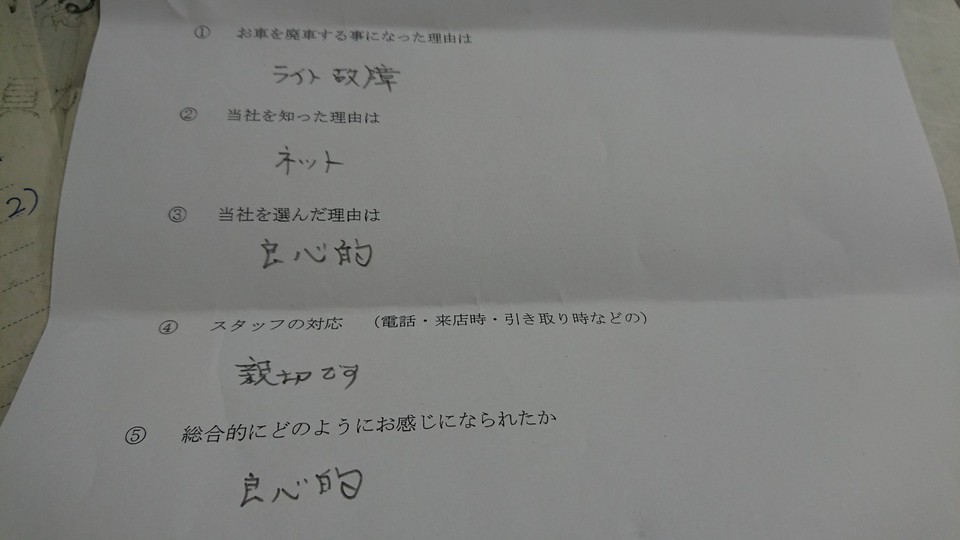 ① お車を廃車する事になった理由は
ライト故障
② 当社を知った理由は
ネット
2)
③ 当社を選んだ理由は
良心的
④ スタッフの対応 （電話・来店時・引き取り時などの）
親切です
⑤ 総合的にどのようにお感じになられたか
良心的